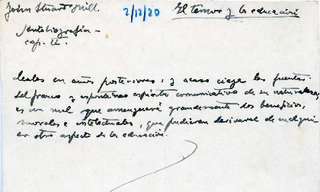 John Stuart Mill
2/12/20
El temor y la educación
Autobiografía
cap. II.
deales en años posteriores, y acaso ciega las fuentes
del franco y espontáneo espíritu comunicativo de su naturaleza,
es un mal que amenguará grandemente los beneficios,
morales e intelectuales, que pudieran derivarse de cualquier
otro aspecto de la educación.